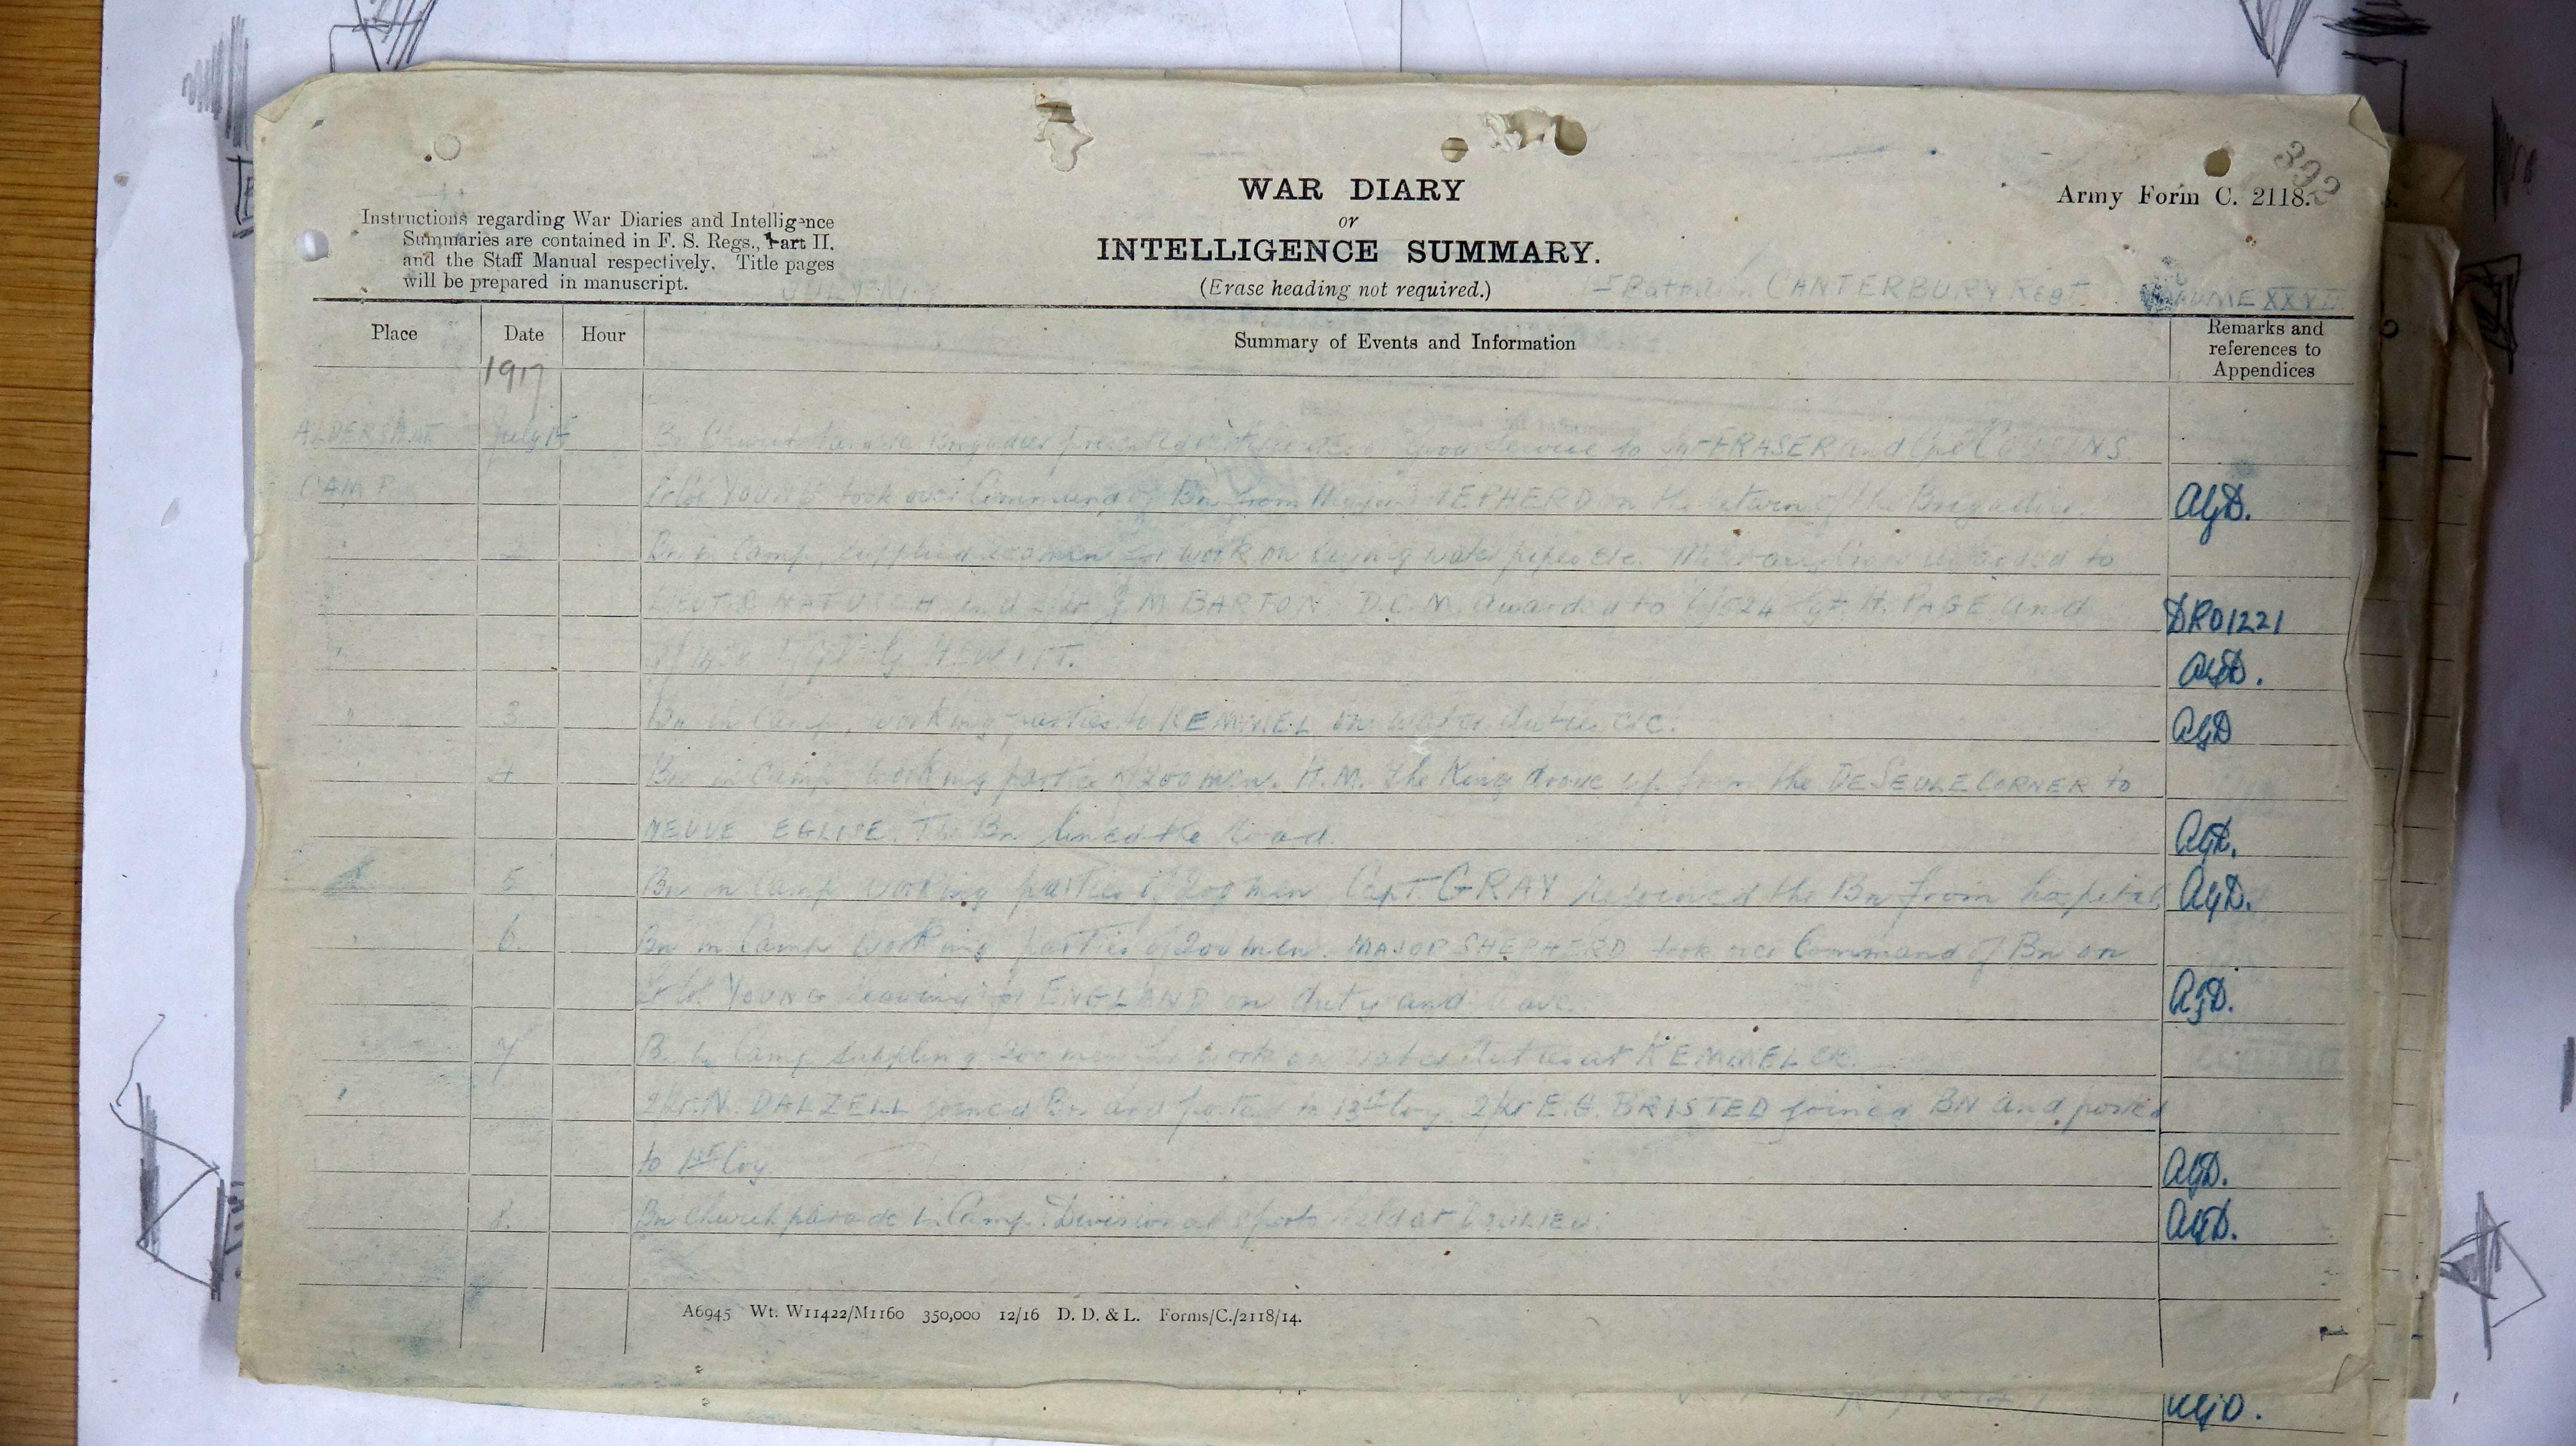 392
Army Form C. 2118.
WAR DIARY
or
INTELLIGENCE SUMMARY.
(Erase heading not required.)
Instructions regarding War Diaries and Intelligence
Summaries are contained in F. S. Regs., Part II.
and the Staff Manual respectively. Title pages
will be prepared in manuscript.
1st Battalion CANTERBURY Regt. VOLUME XXVII
Place Date Hour Summary of Events and Information Remarks and references to Appendices
1917
ALDERSHOT July 1st Bn Church Parade Brigadier presented for Good Service to Sgt FRASER and Cpl COUSINS.
CAMP Lt Col YOUNG took over Command of Bn from Major SHEPHERD on the return of the Brigadier. AGD.
2 Bn in Camp, supplied 200 men for work on laying water pipes etc. awarded to
LIEUT NATUSCH and 2/Lt J M BARTON. D.C.M. awarded to 6/524 Sgt H. PAGE and DRO1221
HEWITT. AGD.
" 3 Bn in Camp, working parties to KEMMEL on water duties etc. AGD
4 Bn in Camp, working parties of 200 men. H.M. The King drove up from the DE SEULE CORNER to
NEUVE EGLISE. The Bn lined the road. AGD.
5 Bn in Camp working parties of 200 men Capt GRAY rejoined the Bn from hospital AGD.
6. Bn in Camp working parties of 200 men. MAJOR SHEPHERD took over Command of Bn on
Lt Col YOUNG leaving for ENGLAND on duty and leave. AGD.
7 Bn in Camp supplying 200 men for work on water duties at KEMMEL etc.
" 2/Lt N. DALZELL joined Bn and posted to 13th Coy. 2/Lt E.G. BRISTED joined BN and posted
to 1st Coy. AGD.
8. Bn Church parade in Camp. Divisional sports held at AGD.
A6945 Wt. W11422/M1160 350,000 12/16 D. D. & L. Forms/C./2118/14.
1
AGD.